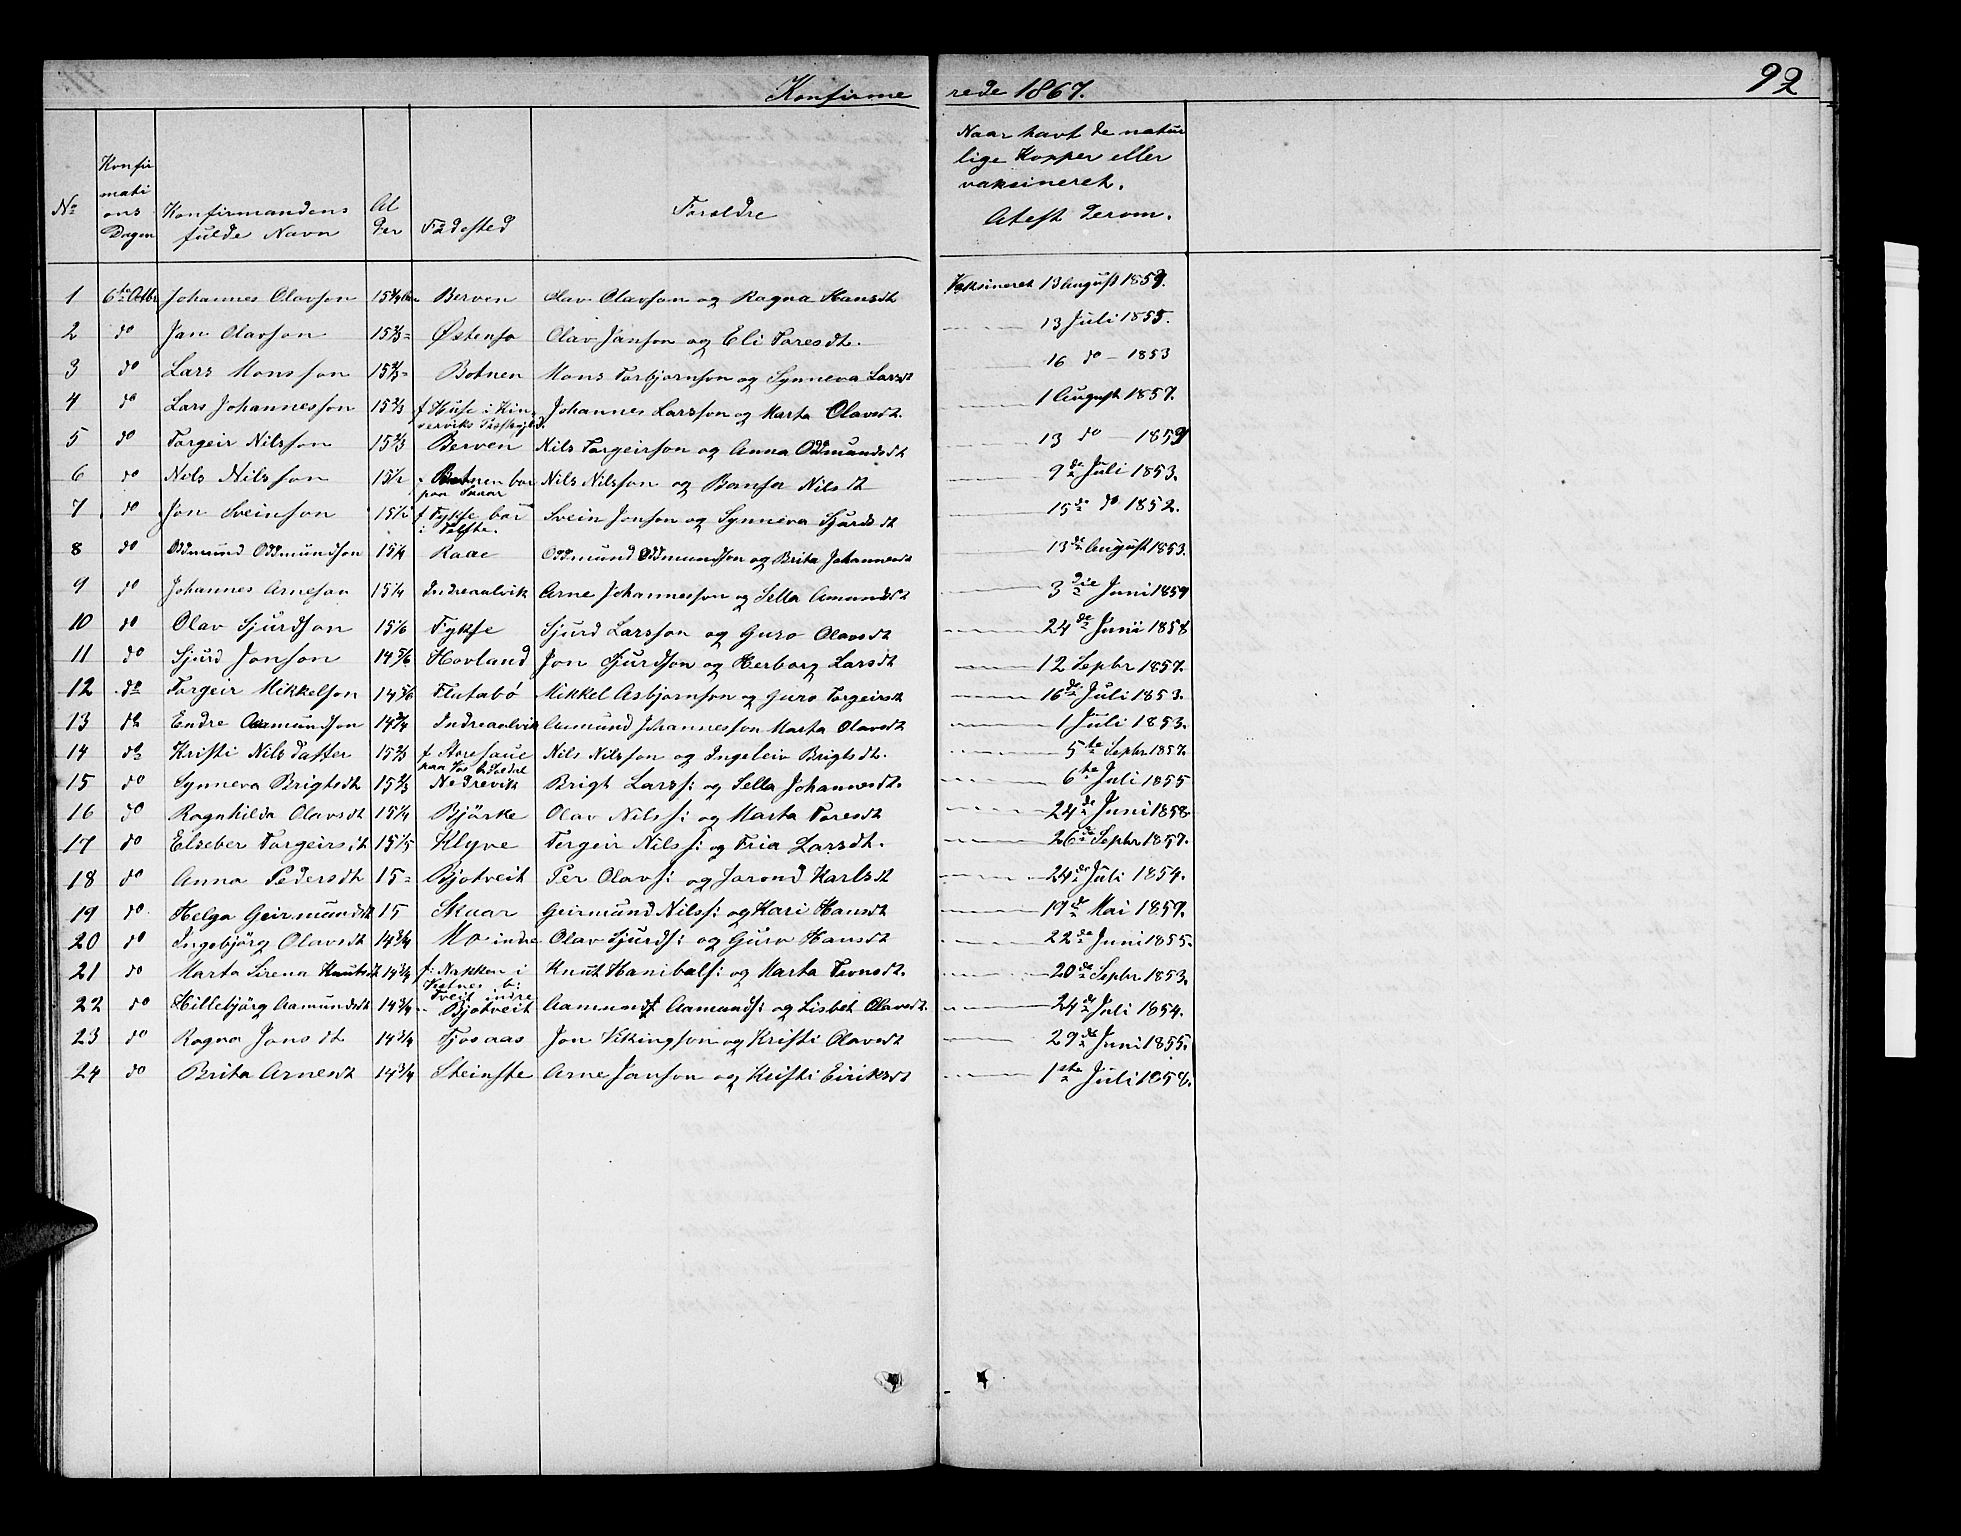 Konfirmerede 1867. 92
No Konfirmationsdagen Konfirmandens fulde Navn Alder Födested Foreldre Naar havt de naturlige Kopper eller vaksineret. Atest derom.
1 6te Octbr Johannes Olavson 15 3/4 Berven Olav Olavson og Ragna Hansdt Vaksineret 13 August 1859.
2 do Jan Olavson 15 2/3 Østensø Olav Janson og Eli Toresdt. 13 Juli 1855.
3 do Lars Monsson 15 2/3 Botnen Mons Torbjornson og Synneva Larsdt 16 do 1853
4 do Lars Johannesson 15 2/3 f Huse i Kinserviks Johannes Larsson og Marta Olavsdt. 1 August 1857.
5 do Torgeir Nilsson 15 2/3 Berven Nils Torgeirson og Anna Oddmundsdt 13 do 1859
6 do Nils Nilsson 15 1/2 Botnen bor paa Skaar Nils Nilsson og Nilsdt 9de Juli 1853.
7 do Jon Sveinson 15 1/2 f Fykse bor i Tolfste. Svein Jonson og Synneva Sjurdsdt 15de do 1852.
8 do Oddmund Oddmundson 15 1/4 Raae Oddmund Oddmundson og Brita Johannesdt 13de August 1853.
9 do Johannes Arneson 15 1/4 Indreaalvik Arne Johannesson og Sella Amundsdt 3die Juni 1859
10 do Olav Sjurdson 15 1/6 Fykse Sjurd Larsson og Guro Olavsdt 24de Juni 1858
11 do Sjurd Jonson 14 5/6 Hovland Jon Sjurdson og Herborg Larsdt 12 Sepbr 1857.
12 do Torgeir Mikkelson 14 5/6 Flutabø Mikkel Asbjornson og Guro Torgeirsdt 16de Juli 1853.
13 do Endre Aamundson 14 3/4 Indreaalvik Aamund Johannesson Marta Olavsdt 1 Juli 1853.
14 do Kristi Nilsdatter 15 2/3 f Storesaue paa Vos Nils Nilsson og Ingeleiv Brigtsdt. 5te Sepbr 1857.
15 do Synneva Brigtsdt 15 2/3 Nedrevik Brigt Larss: og Sella Johannesdt. 6te Juli 1855
16 do Ragnhilda Olavsdt 15 1/4 Bjørke Olav Nilss: og Marta Toresdt 24de Juni 1858.
17 do Elseber Torgeirsdt 15 1/5 Klyve Torgeir Nilss: og Fria Larsdt. 26de Sepbr 1857.
18 do Anna Pedersdt 15 Bjotveit Per Olavs: og Jorond Karlsdt 24de Juli 1854.
19 do Helga Geirmundsdt 15 Skaar Geirmund Nilss: og Kari Hansdt 19de Mai 1859.
20 do Ingebjörg Olavsdt 14 3/4 Mo indre Olav Sjurds: og Guro Hansdt 22de Juni 1855.
21 do Marta Sirena Knutsdt 14 3/4 f: Nakken i b: Tveit indre Knut Hanibals: og Marta Ivonsdt. 20de Sepbr 1853.
22 do Hillebjörg Aamundsdt 14 3/4 Bjotveit Aamund Aamunds: og Lisbet Olavsdt. 24de Juli 1854.
23 do Ragna Jonsdt 14 3/4 Fjosaas Jon Vikingson og Kristi Olavsdt 29de Juni 1855.
24 do Brita Arnesdt 14 3/4 Steinstø Arne Janson og Kristi Eiriksdt 1ste Juli 1858.